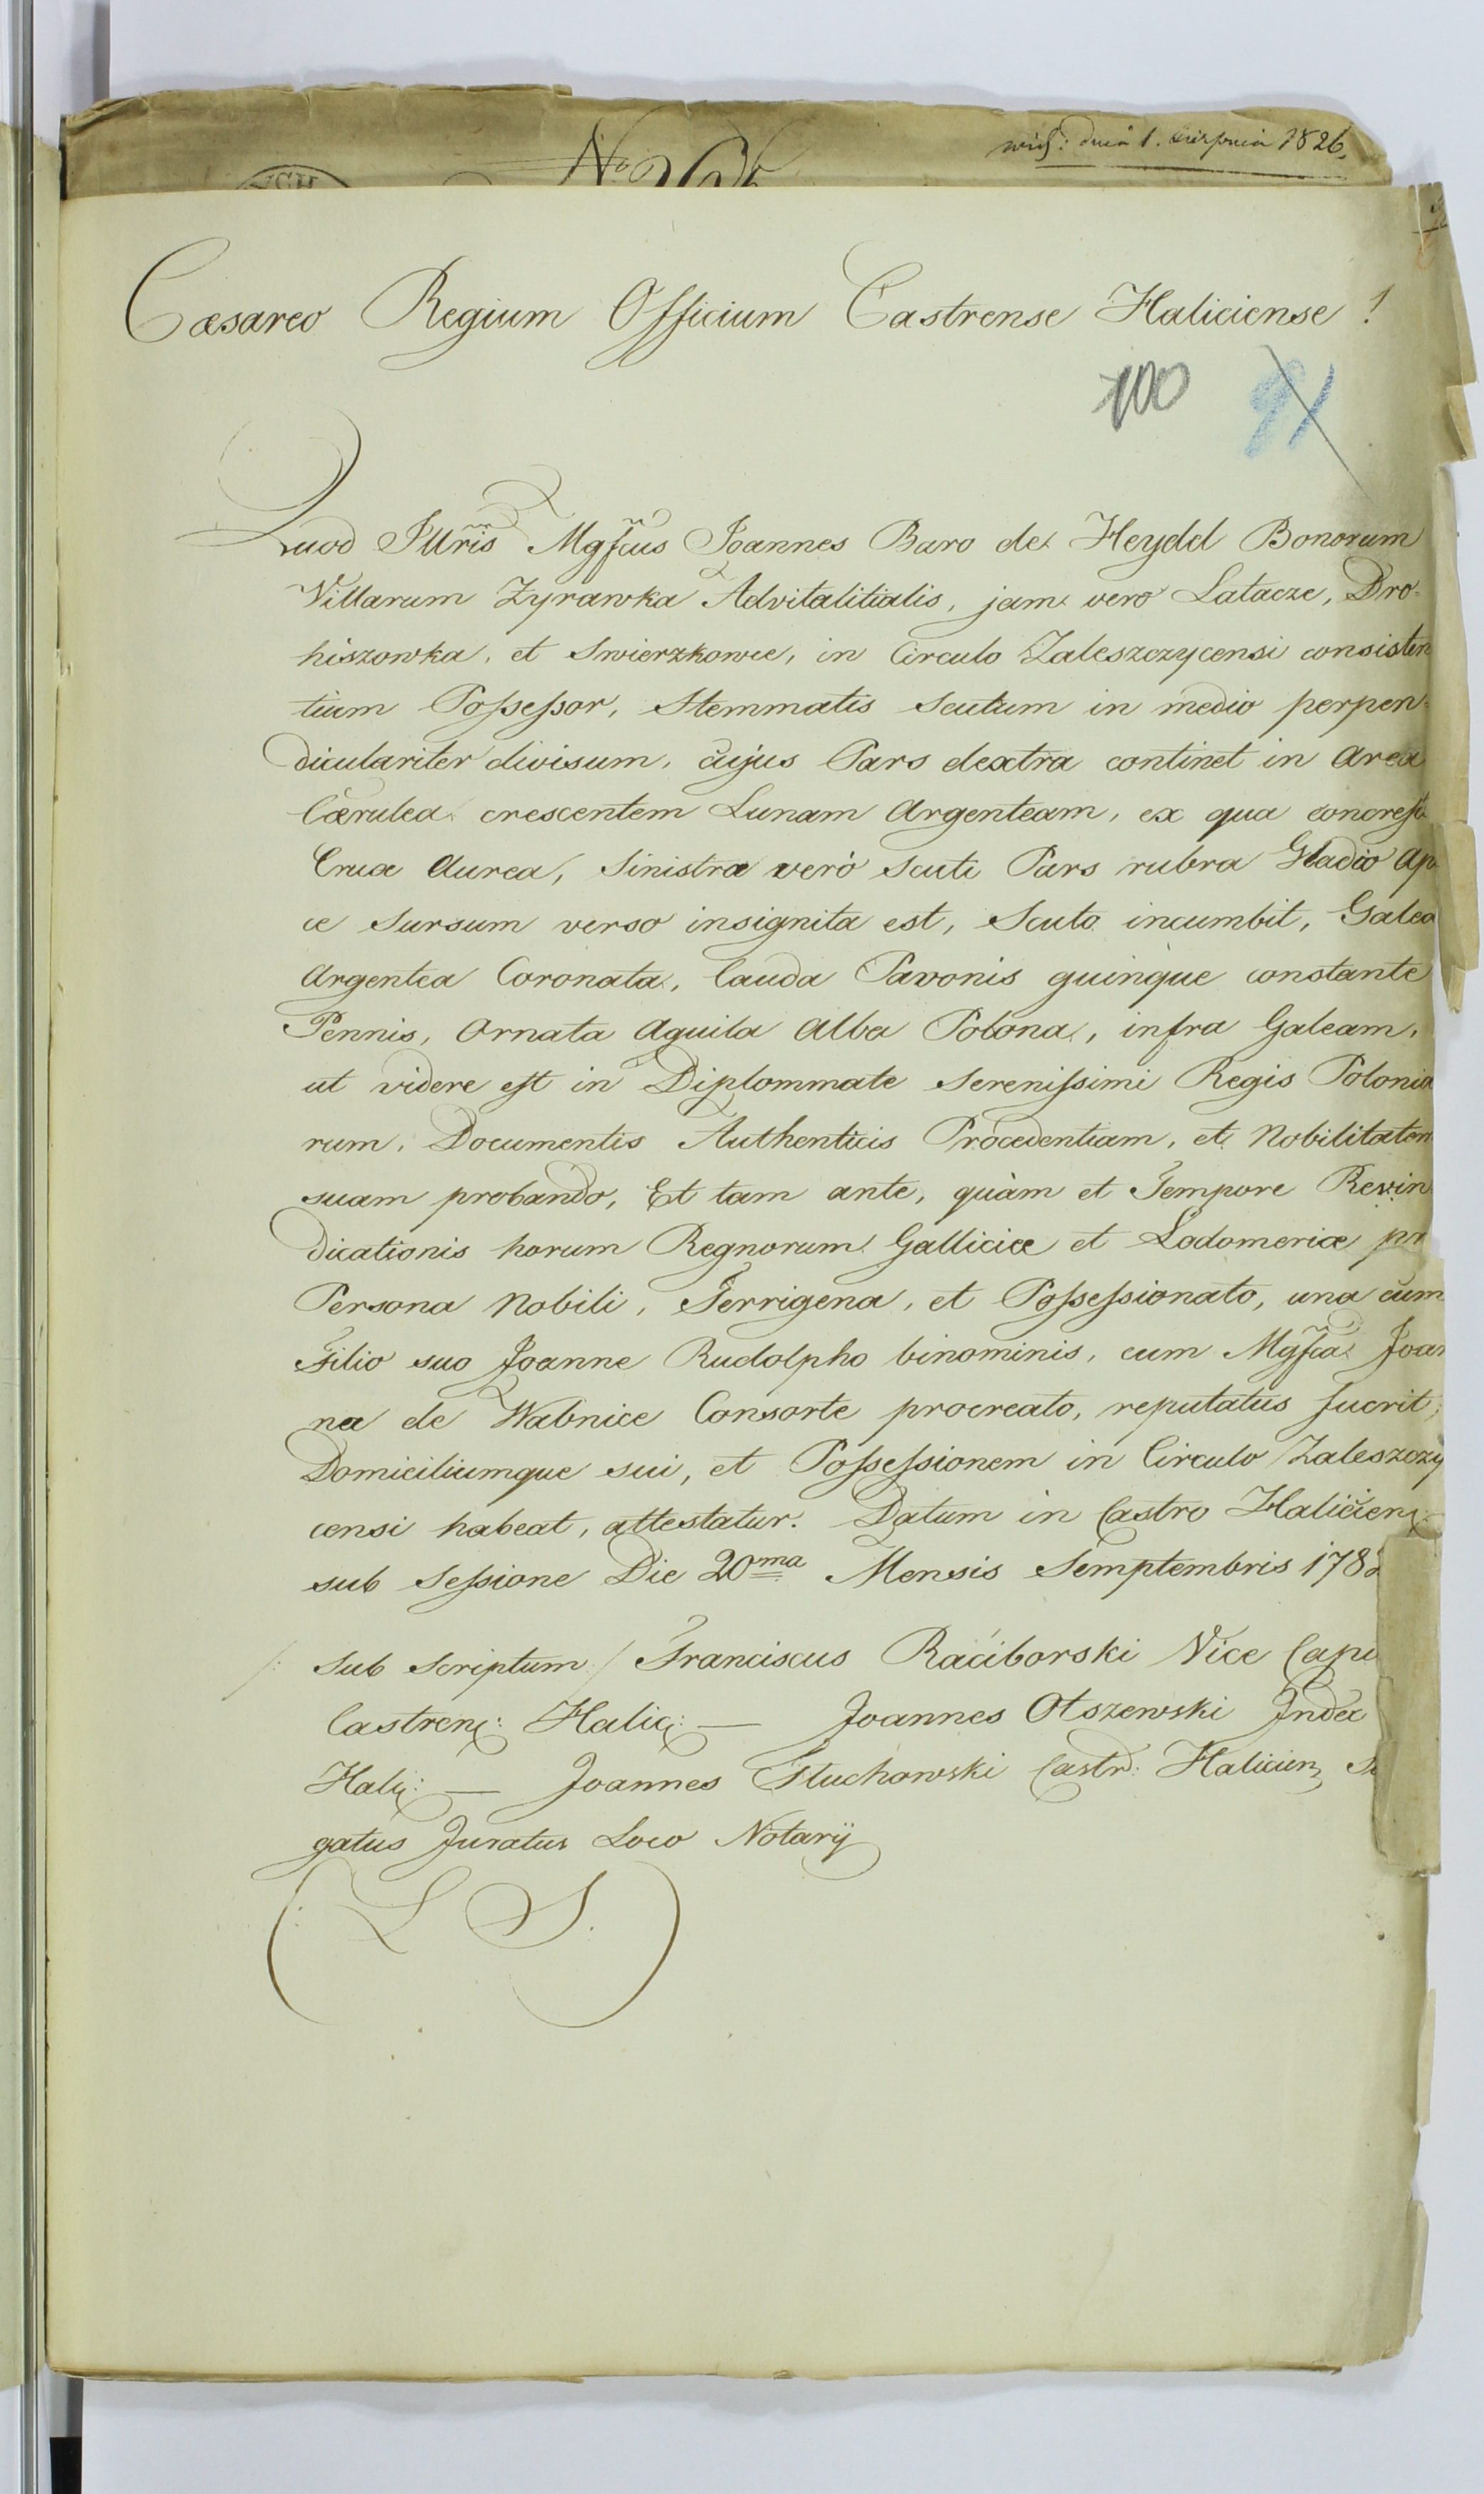 1. Sierpnia 1826.
No
Cæsareo Regium Officium Castrense Haliciense !
100 91
Quod Illris Mgfcus Joannes Baro de Heydel Bonorum
Villarum Zyrawka Advitalitialis, jam vero Latacze, Dro=
hiszowka, et Swierzkowce, in Circulo Zaleszczycensi consisten
tium Possessor, Stemmatis Scutum in medio perpen=
diculariter divisum, cujus Pars dextra continet in Area
Cærulea crescentem Lunam Argenteam, ex qua concresc
Crux Aurea, Sinistra verò Scuti Pars rubra Gladio Ap
ce Sursum verso insignita est, Scuto incumbit, Galea
Argentea Coronata, Cauda Pavonis quinque constante
Pennis, Ornata Aquila Alba Polona, infra Galeam,
ut videre est in Diplommate Serenissimi Regis Polonia
rum, Documentis Authenticis Procedentiam, et Nobilitatem
suam probando, Et tam ante, quàm et Tempore Revin
dicationis horum Regnorum Galliciæ et Lodomeriæ pr
Persona Nobili, Terrigena, et Possessionato, una cum
Filio suo Joanne Rudolpho binominis, cum Mgfca Joan
na de Wabnice Consorte procreato, reputatus fuerit;
Domiciliumque sui, et Possessionem in Circulo Zaleszczy
censi habeat, attestatur. Datum in Castro Halicien:
sub Sessione Die 20ma Mensis Semptembris 178
/: Sub Scriptum / Franciscus Raciborski Vice Capi
Castren: Halic: — Joannes Olszewski Judex
Hali: — Joannes Głuchowski Castr: Halicien
gatus Juratus Loco Notarÿ
(: L S. )